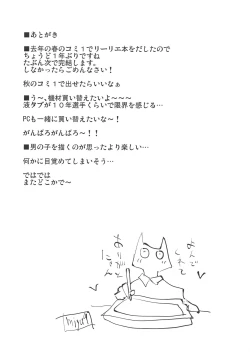 ■あとがき
■去年の春のコミ1でリーリエ本をだしたので
ちょうど1年ぶりですね
たぶん次で完結します。
しなかったらごめんなさい！
秋のコミ1で出せたらいいなぁ
■う～、機材買い替えたいよ～～～
液タブが10年選手くらいで限界を感じる…
PCも一緒に買い替えたいな～！
がんばろがんばろ～！！
■男の子を描くのが思ったより楽しい…
何かに目覚めてしまいそう…
ではでは
またどこかで～